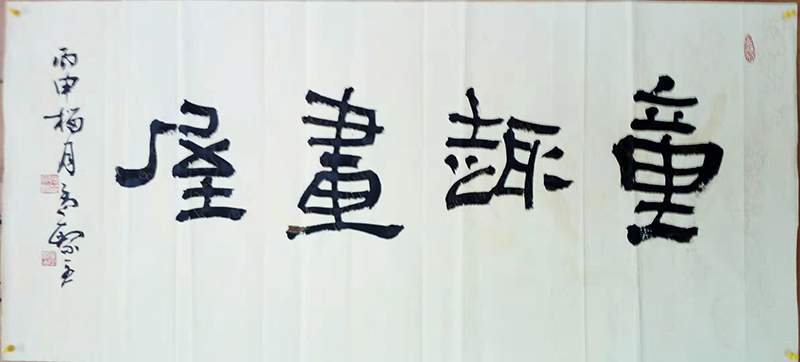 童趣畫屋
丙申梅月